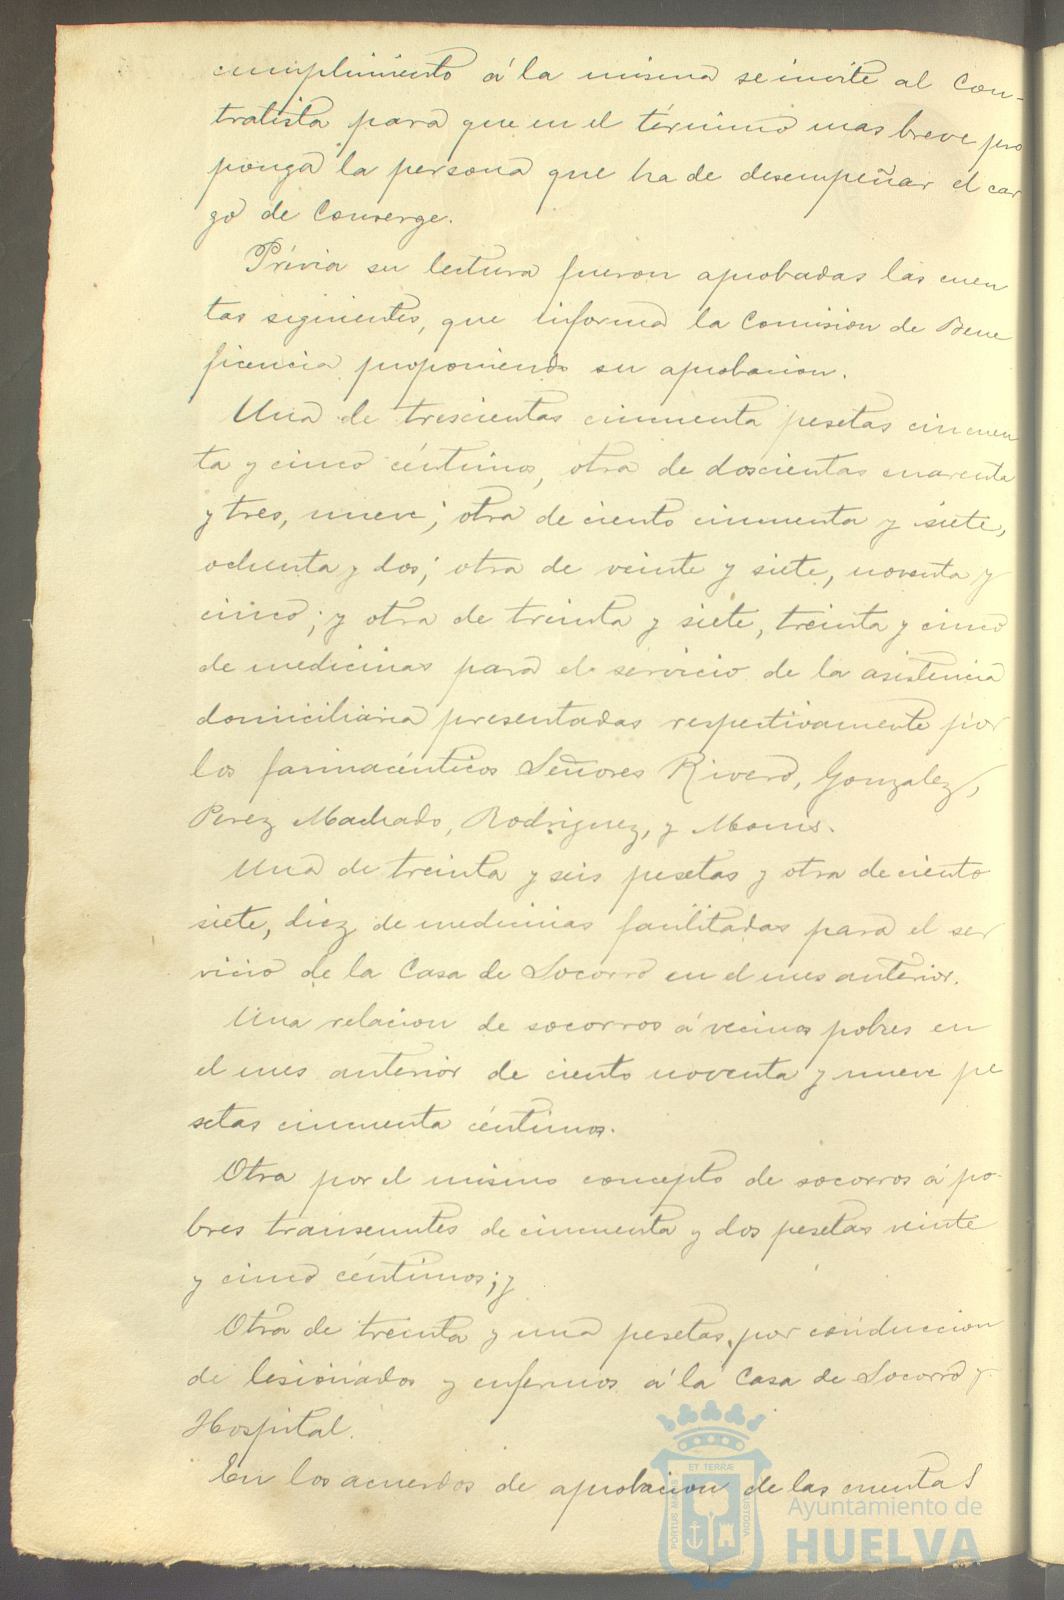 cumplimiento á la misma se invite al Con-
tratista para que en el término mas breve pro
ponga la persona que ha de desempeñar el car
go de Conserge.
Prévia su lectura fueron aprobadas las cuen
tas siguientes, que informa la Comision de Bene
ficencia proponiendo su aprobacion.
Una de trescientas cincuenta pesetas cincuen
ta y cinco céntimos, otra de doscientas cuarenta
y tres, nueve; otra de ciento cincuenta y siete,
ochenta y dos; otra de veinte y siete, noventa y
cinco; y otra de treinta y siete, treinta y cinco
de medicinas para el servicio de la asistencia
domiciliaria presentadas respectivamente por
los farmacéuticos Señores Rivero, Gonzalez,
Perez Machado, Rodriguez, y
Una de treinta y seis pesetas y otra de ciento
siete, diez de medicinas facilitadas para el ser
vicio de la Casa de Socorro en el mes anterior.
Una relacion de socorros á vecinos pobres en
el mes anterior de ciento noventa y nueve pe
setas cincuenta céntimos.
Otra por el mismo concepto de socorros á po-
bres transeuntes de cincuenta y dos pesetas veinte
y cinco céntimos; y
Otra de treinta y una pesetas, por conduccion
de lesionados y enfermos á la Casa de Socorro y
Hospital.
En los acuerdos de aprobacion de las cuentas
PORTUS MARIS ET TERRÆ CUSTODIA
Ayuntamiento de
HUELVA